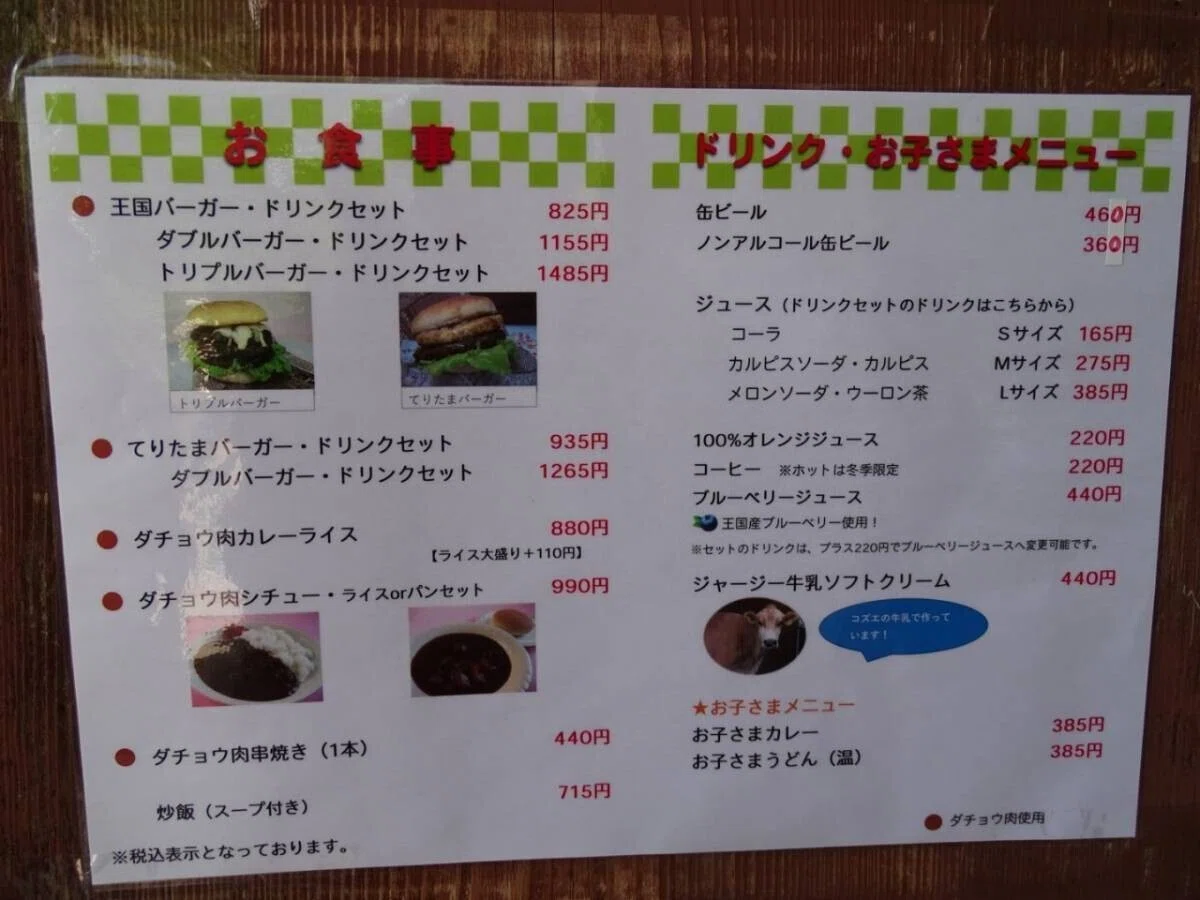 お食事
王国バーガー・ドリンクセット 825円
ダブルバーガー・ドリンクセット 1155円
トリプルバーガー・ドリンクセット 1485円
トリプルバーガー
てりたまバーガー
てりたまバーガー・ドリンクセット 935円
ダブルバーガー・ドリンクセット 1265円
ダチョウ肉カレーライス 880円
【ライス大盛り+110円】
ダチョウ肉シチュー・ライスorパンセット 990円
ダチョウ肉串焼き(1本) 440円
炒飯(スープ付き) 715円
※税込表示となっております。
ドリンク・お子さまメニュー
缶ビール 460円
ノンアルコール缶ビール 360円
ジュース(ドリンクセットのドリンクはこちらから)
コーラ Sサイズ 165円
カルピスソーダ・カルピス Mサイズ 275円
メロンソーダ・ウーロン茶 Lサイズ 385円
100%オレンジジュース 220円
コーヒー ※ホットは冬季限定 220円
ブルーベリージュース 440円
王国産ブルーベリー使用!
※セットのドリンクは、プラス220円でブルーベリージュースへ変更可能です。
ジャージー牛乳ソフトクリーム 440円
コズエの牛乳で作って
います!
★お子さまメニュー
お子さまカレー 385円
お子さまうどん(温) 385円
ダチョウ肉使用